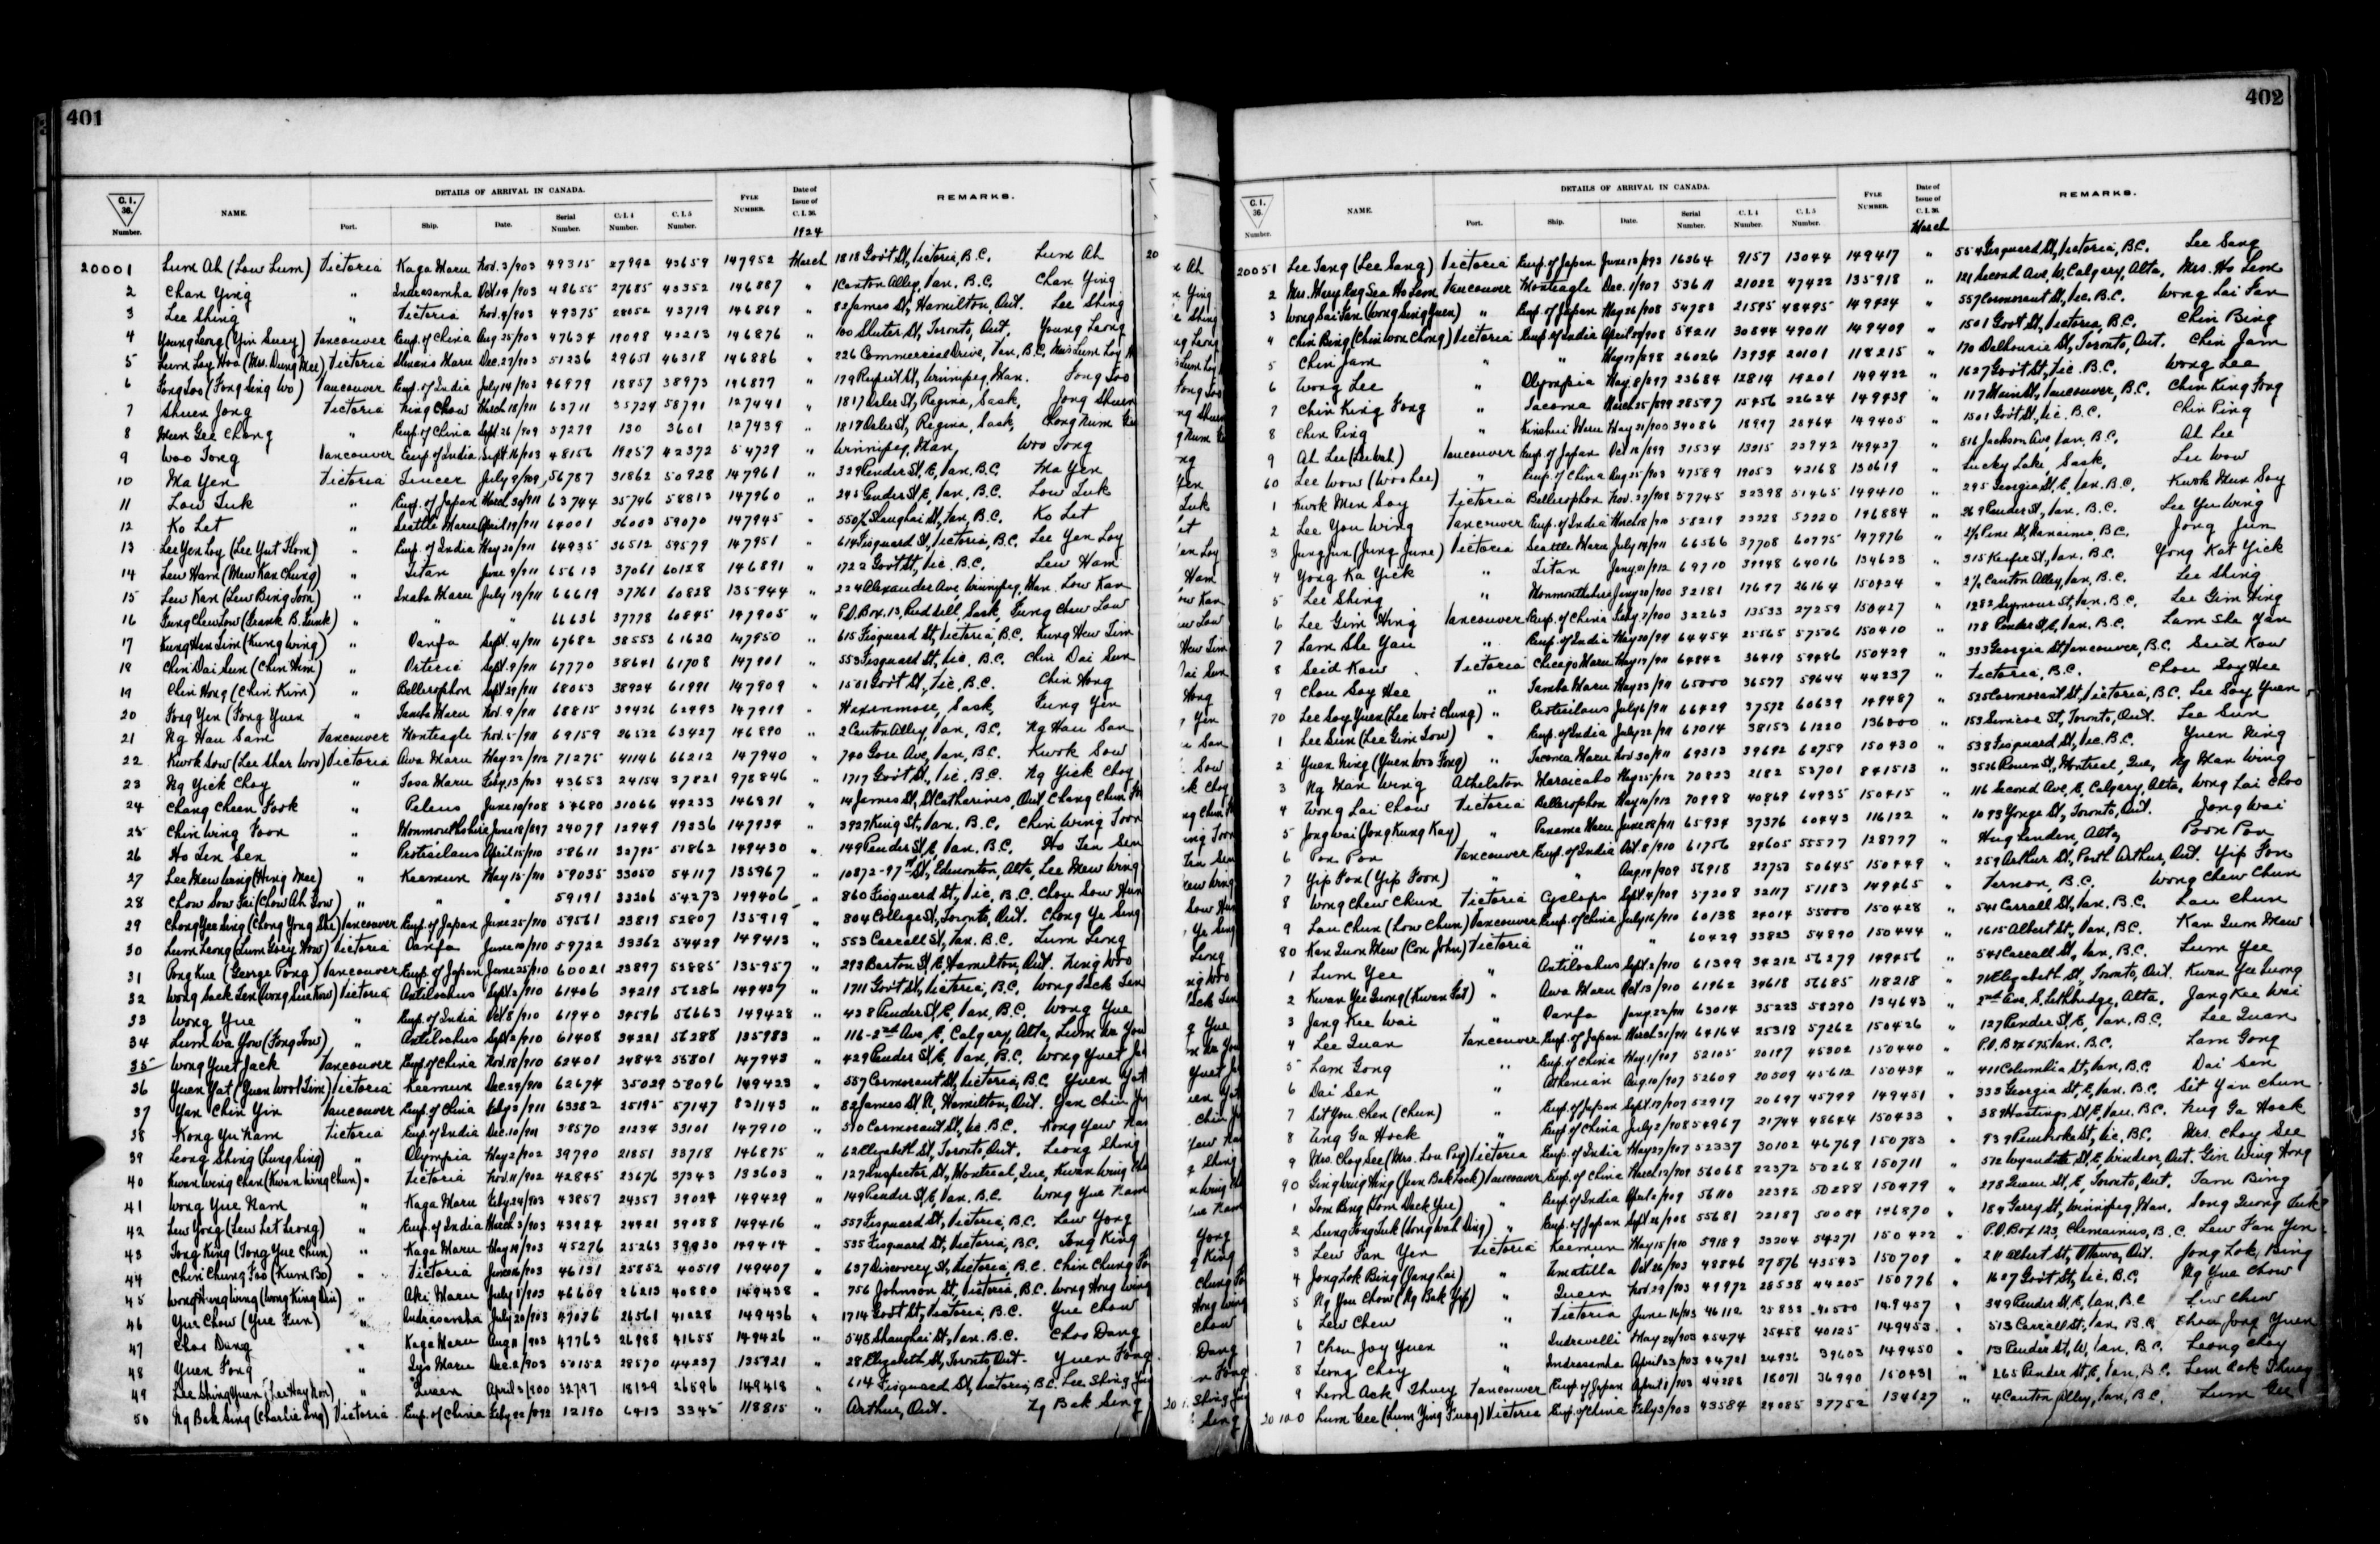 401
C. I. 36. Number. NAME. DETAILS OF ARRIVAL IN CANADA. Port. Ship. Date. Serial Number. C. I. 4 Number. C. I. 5 Number. FYLE NUMBER. Date of Issue of C. I. 36. 1924 REMARKS.
20001 Lum Ah (Low Lum) Victoria Kaga Maru Nov. 3/903 49315 27992 43659 147952 March 1818 Gov't St, Victoria, B.C. Lum Ah
2 Chan Ying " Indrasamha Oct 14/903 48655 27685 43352 146887 " 1 Canton Alley, Van. B.C. Chan Ying
3 Lee Shing " Victoria Nov. 9/903 49375 28052 43719 146869 " 82 James St, Hamilton, Ont. Lee Shing
4 Young Leong (Yin Suey) Vancouver Emp. of China Aug 25/903 47634 19098 42213 146876 " 100 Shuter St, Toronto, Ont, Young Leong
5 Lum Loy Hoa (Mrs. Dung Mee) Victoria Shinano Maru Dec. 27/903 51236 29651 46318 146886 " 226 Commercial Drive, Van, B.C. Mrs Lum Loy H
6 Fong Soo (Fong Sing Wo) Vancouver Emp. of India July 14/903 46979 18857 38973 146877 " 179 Rupert St, Winnipeg, Man. Fong Soo
7 Shuen Jong Victoria Ning Chow March 18/911 63711 35724 58791 127441 " 1817 Osler St, Regina, Sask, Jong Shuen
8 Mun Gee Chong " Emp. of China Sept. 26/909 57279 130 3601 127439 " 1817 Osler St, Regina, Sask, Chong Num Gee
9 Woo Tong Vancouver Emp. of India Sept 16/903 48156 19257 42372 54729 " Winnipeg, Man, Woo Tong
10 Ma Yen Victoria Teucer July 9/909 56787 31862 50928 147961 " 329 Pender St, E, Van, B.C. Ma Yen
11 Low Tuk " Emp. of Japan March 30/911 63744 35746 58813 147960 " 243 Pender St, E, Van. B.C. Low Tuk
12 Ko Let " Seattle Maru April 19/911 64001 36003 59070 147945 " 550½ Shanghai St, Van, B.C. Ko Let
13 Lee Yen Loy (Lee Yut Thom) " Emp. of India May 20/911 64935 36512 59579 147951 " 614 Fisguard St, Victoria, B.C. Lee Yen Loy
14 Lew Ham (Mew Kan Chung) " Titan June 9/911 65613 37061 60128 146891 " 1722 Gov't St, Vic. B.C. Lew Ham
15 Lew Kan (Lew Bing Toon) " Inaba Maru July 19/911 66619 37761 60828 135944 " 224 Alexander Ave, Winnipeg, Man. Low Kan
16 Fung Chew Low (Frank B. Funk) " " " 66636 37778 60845 147905 " P.O. Box. 13, Rud dell, Sask, Fung Chew Low
17 Kung Hew Tim (Kung Wing) " Oanfa Sept. 4/911 67682 38553 61620 147950 " 615 Fisguard St, Victoria, B.C. Kung Hew Tim
18 Chin Dai Sun (Chin Him) " Orteric Sept. 9/911 67770 38641 61708 147901 " 553 Fisguard St, Vic, B.C. Chin Dai Sun
19 Chin Hong (Chin Kim) " Bellerophon Sept 29/911 68053 38924 61991 147909 " 1501 Gov't St, Vic, B.C. Chin Hong
20 Fong Yen (Fong Yuen " Tamba Maru Nov. 9/911 68815 39426 62493 147919 " Sask, Fung Yen
21 Ng Hau Sam Vancouver Monteagle Nov. 5/911 69159 26532 63427 146890 " 2 Canton Alley, Van, B.C. Ng Hau San
22 Kwok Sow (Lee Shar Woo) Victoria Awa Maru May 22/912 71275 41146 66212 147940 " 740 Gore Ave, Van, B.C. Kwok Sow
23 Ng Yick Choy " Tosa Maru Feby. 13/903 43653 24154 37821 978846 " 1717 Gov't St, Vic, B.C. Ng Yick Choy
24 Chang Chan Fook " Peleus June 19/908 54680 31066 49233 146871 " 14 James St, St Catharines, Ont. Chang Chun
25 Chin Wing Foon " Monmouthshire June 18/897 24079 12949 19236 147934 " 3927 King St, Van. B.C. Chin Wing Toon
26 Ho Ten Sen " Protesilaus April 15/910 58611 32795 51862 149430 " 149 Pender St, E, Van. B.C. Ho Ten Sen
27 Lee Mew Wing (Hing Mee) " Keemun May 15/910 59035 33050 54117 135967 " 10872-97th St, Edmonton, Alta, Lee Mew Wing
28 Chow Sow Fai (Chow Ah Sow) " " " 59191 33206 54273 149406 " 860 Fisguard St, Vic, B.C. Chow Sow Hun
29 Chong Yee Sing (Chong Yong She) Vancouver Emp. of Japan June 25/910 59561 23819 52807 135919 " 804 College St, Toronto, Ont. Chong Ye Sing
30 Lum Leong (Lum Gory How) Victoria Oanfa June 10/910 59722 33362 54429 149413 " 553 Carrall St, Van. B.C. Lum Leong
31 Pong Kue (George Pong) Vancouver Emp. of Japan June 25/910 60021 23897 53885 135957 " 293 Barton St, E, Hamilton, Ont.
32 Wong Sack Ten (Wong Sue Kow) Victoria Antilochus Sept. 2/910 61406 34219 56286 149437 " 1711 Gov't St, Victoria, B.C, Wong Sack Ten
33 Wong Yue " Emp. of India Oct 8/910 61940 34596 56663 149428 " 438 Pender St, E, Van, B.C, Wong Yue
34 Lum Wa Yow (Fong Tow) " Antilochus Sept 2/910 61408 34221 56288 135983 " 116-2nd Ave, E, Calgary, Alta, Lum Wa You
35 Wong Yuet Jack Vancouver Emp. of China Nov. 18/910 62401 24842 55801 147943 " 429 Pender St, E, Van, B.C. Wong Yuet
36 Yuen Yat (Yuen Wool Tim) Victoria Keemun Dec. 29/910 62674 35029 58096 149423 " 557 Cormorant St, Victoria, B.C. Yuen Yat
37 Yan Chin Yin Vancouver Emp. of China Feby 3/911 63382 25195 57147 831143 " 82 James St, N, Hamilton, Ont. Yan Chin
38 Kong Yu Nam Victoria Emp. of India Dec. 10/901 38570 21234 33101 147910 " 510 Cormorant St, Vic. B.C. Kong Yew Nam
39 Leong Shing (Lung Sing) " Olympia May 2/902 39790 21851 33718 146875 " 62 Elizabeth St, Toronto, Ont. Leong Shong
40 Kwan Wing Chan (Kwan Wing Chun) " Victoria Nov. 11/902 42845 23676 37343 133603 " 127 Inspector St, Montreal, Que, Kwan Wing
41 Wong Yue Nam " Kaga Maru Feby. 24/903 43857 24357 39024 149429 " 149 Pender St, E, Van, B.C. Wong Yue Nam
42 Lew Yong (Lew Let Leong) " Emp. of India March 3/903 43924 24421 39088 149416 " 557 Fisguard St, Victoria, B.C. Lew Yong
43 Tong King (Tong Yue Chun) " Kaga Maru May 19/903 45276 25263 39930 149414 " 535 Fisguard St, Victoria, B.C. Tong King
44 Chin Chung Foo (Kum Bo) " Victoria June 16/903 46131 25852 40519 149407 " 637 Discovery St, Victoria, B.C. Chin Chung
45 Wong Hung Wing (Wong King Dui) " Aki Maru July 8/903 46609 26213 40880 149438 " 756 Johnson St, Victoria, B.C. Wong Hong Wing
46 Yue Chow (Yue Fun) " Indrasamha July 20/903 47036 26561 41228 149436 " 1714 Gov't St, Victoria, B.C. Yue Chow
47 Choo Dung " Kaga Maru Aug 11/903 47763 26988 41655 149426 " 548 Shanghai St, Van. B.C. Choo Dang
48 Yuen Fong " Iyo Maru Dec. 2/903 50152 28570 44237 135921 " 28 Elizabeth St, Toronto, Ont. Yuen Fong
49 Lee Shing Yuen (Lee Hay Non) " Queen April 3/900 32797 18129 26596 149418 " 614 Fisguard St, Victoria, B.C. Lee Shing
50 Ng Bak Sing (Charlie Ing) Victoria Emp. of China Feby 22/892 12190 6413 3345 118815 " Arthur, Ont. Ng Bak Sing
402
C. I. 36. Number. NAME. DETAILS OF ARRIVAL IN CANADA. Port. Ship. Date. Serial Number. C. I. 4 Number. C. I. 5 Number. FYLE NUMBER. Date of Issue of C. I. 36. March REMARKS.
20051 Lee Tang (Lee Sang) Victoria Emp. of Japan June 13/893 16364 9157 13044 149417 " 554 Fisguard St, Victoria, B.C. Lee Sang
2 Mrs. Mary Ing Sea Ho Lem Vancouver Monteagle Dec. 1/907 53611 21022 47422 135918 " 121 Second Ave, W, Calgary, Alta, Mrs. Ho Lem
3 Wong Lai Fan (Wong Sing Yuen) " Emp. of Japan May 26/908 54783 21595 48495 149424 " 557 Cormorant St, Vic. B.C. Wong Lai Fan
4 Chin Bing (Chin Won Chong) Victoria Emp. of India April 30/908 54211 30844 49011 149409 " 1501 Gov't St, Victoria, B.C. Chin Bing
5 Chin Jam " " May 17/898 26026 13934 20101 118215 " 170 Dalhousie St, Toronto, Ont. Chin Jam
6 Wong Lee " Olympia May. 8/897 23684 12814 19201 149422 " 1627 Gov't St, Vic. B.C. Wong Lee
7 Chin King Fong " Tacoma March 25/899 28597 15456 22624 149439 " 117 Main St, Vancouver, B.C. Chin King Fong
8 Chin Ping " Kinshiu Maru May 31/900 34086 18997 28464 149405 " 1501 Gov't St, Vic. B.C. Chin Ping
9 Ah Lee (Lee Wah) Vancouver Emp. of Japan Oct 18/899 31534 13315 23942 149427 " 816 Jackson Ave, Van, B.C. Ah Lee
60 Lee Wow (Woo Lee) " Emp. of China Aug 25/903 47589 19053 42168 130619 " Lucky Lake, Sask, Lee Wow
1 Kwok Men Soy Victoria Bellerophon Nov. 27/908 57745 32398 51465 149410 " 295 Georgia St, E, Van, B.C. Kwok Mun Soy
2 Lee You Wing Vancouver Emp. of India March 18/910 58219 23228 52220 146884 " 269 Pender St, Van. B.C. Lee Yu Wing
3 Jung Jun (Jung June) Victoria Seattle Maru July 14/911 66566 37708 60775 147976 " Pine St, Nanaimo, B.C. Jong Jun
4 Yong Ka Yick " Titan Jany. 21/912 69710 39948 64016 134623 " 315 Keefer St, Van. B.C. Yong Kat Yick
5 Lee Shing " Monmouthshire Jany 20/900 32181 17697 26164 150424 " 2½ Canton Alley, Van, B.C. Lee Shing
6 Lee Gim Hing Vancouver Emp. of China Feby. 7/900 32263 13533 27259 150427 " 1282 Seymour St, Van. B.C. Lee Gim Hing
7 Lam She Yau " Emp. of India May 20/911 64454 25565 57506 150410 " 178 Pender St, E, Van, B.C. Lam Sla Yan
8 Seid Kow Victoria Chicago Maru May 17/911 64842 36419 59486 150429 " 333 Georgia St, Vancouver, B.C. Seid Kow
9 Chou Soy Hee " Tamba Maru May 23/911 65000 36577 59644 44237 " Victoria, B.C. Chou Soy Hee
70 Lee Soy Yuen (Lee Woi Chung) " Protesilaus July 6/911 66429 37572 60639 149487 " 525 Cormorant St, Victoria, B.C. Lee Soy Yuen
1 Lee Sun (Lee Gim Sow) " Emp. of India July 22/911 67014 38153 61220 136000 " 153 Simcoe St, Toronto, Ont. Lee Sun
2 Yuen Ning (Yuen Woo Fong) " Tacoma Maru Nov 30/911 69313 39692 62759 150430 " 538 Fisguard St, Vic. B.C. Yuen Ning
3 Ng Man Wing Athelstan Maracaibo May 25/912 70823 2182 52701 841513 " 3516 Rouen St, Montreal, Que, Ng Man Wing
4 Wong Lai Chow Victoria Bellerophon May 10/912 70998 40869 64935 150415 " 116 Second Ave, E, Calgary, Alta, Wong Lai Choo
5 Jong Wai (Jong Kung Kay) " Panama Maru June 18/911 65934 37376 60443 116122 " 1093 Yonge St, Toronto, Ont. Jong Wai
6 Pon Pon Vancouver Emp. of India Oct. 8/910 61756 24605 55577 128777 " Hughenden, Alta, Poon Pon
7 Yip Fon (Yip Foon) " " Aug 14/909 56918 22753 50645 150449 " 259 Arthur St, Port Arthur, Ont. Yip Fon
8 Wong Chew Chun Victoria Cyclops Sept. 4/909 57208 32117 51183 149465 " Vernon, B.C. Wong Chew Chun
9 Lau Chun (Low Chun) Vancouver Emp. of China July 16/910 60138 24014 55000 150428 " 541 Carrall St, Van. B.C. Lau Chun
80 Kan Quon Mew (Con John) Victoria " " 60429 33823 54890 150444 " 1615 Albert St, Van, B.C. Kan Quon Mew
1 Lum Yee " Antilochus Sept. 2/910 61399 34212 56279 149456 " 541 Carrall St, Van, B.C. Lum Yee
2 Kwan Yee Quong (Kwan Fat) " Awa Maru Oct 13/910 61962 34618 56685 118218 " Elizabeth St, Toronto, Ont. Kwan Yee Luong
3 Jang Kee Wai " Oanfa Jany. 22/911 63014 35223 58290 134643 " 2nd Ave, S, Lethbridge, Alta. Jang Kee Wai
4 Lee Quan Vancouver Emp. of Japan March 31/911 64164 25318 57262 150426 " 127 Pender St, E, Van, B.C. Lee Quan
5 Lam Gong " Emp. of China May 1/907 52105 20197 45302 150440 " P.O. Box 675 Van. B.C. Lam Gong
6 Dai Sen " Athenian Aug. 10/907 52609 20509 45612 150434 " 411 Columbia St, Van, B.C. Dai Sen
7 Sit You Chen (Chun) " Emp. of Japan Sept. 17/907 52917 20697 45799 149451 " 333 Georgia St, E, Van, B.C. Sit Yan Chun
8 Ung Ga Hock " Emp. of China July 2/908 54967 21744 48644 150433 " 389 Hastings St, E, Van. B.C. Nug Ga Hock
9 Mrs. Choy See (Mrs. Lou Poy) Victoria Emp. of India May 27/907 52337 30102 46769 150783 " 939 Pembroke St, Vic, B.C. Mrs. Choy See
90 Ging Wing Hing (Jeen Bak Tock) Vancouver Emp. of China March 17/909 56068 22372 50268 150711 " 572 Wyandotte St, E, Windsor, Ont. Gin Wing Hong
1 Tom Bing (Tom Dack Yue) " Emp. of India April 2/909 56110 22392 50288 150479 " 278 Queen St, E, Toronto, Ont. Tam Bing
2 Sung Fong Tuk (Wong Wah Ding) " Emp. of Japan Sept. 26/908 55681 22187 50084 146870 " 184 Garry St, Winnipeg, Man. Song Quong Tuk
3 Lew Fan Yen Victoria Keemun May 15/910 59189 33204 54271 150422 " P.O. Box 123, Chemainus, B.C. Lew Fan Yen
4 Jong Lok Bing (Jang Lai) " Umatilla Oct 26/903 48846 27876 43543 150709 " 211 Albert St, Ottawa, Ont. Jong Lok Bing
5 Ng You Chow (Ng Bak Yip) " Queen Nov. 29/903 49972 28538 44205 150776 " 1627 Gov't St, Vic. B.C. Ng Yue Chow
6 Lew Chew " Victoria June 16/903 46112 25833 40500 149457 " 349 Pender St, E, Van, B.C Lew Chew
7 Chou Joy Yuen " Indravelli May 24/903 45474 25458 40125 149453 " 513 Carrall St, Van, B.C. Chou Jong Yuen
8 Leong Choy " Indrasamha April 23/903 44721 24936 39603 149450 " 13 Pender St, W, Van, B.C. Leong Choy
9 Lem Ack Thuey Vancouver Emp. of Japan April 8/903 44288 18071 36990 150431 " 265 Pender St, E, Van, B.C. Lem Ack Thuey
20100 Lum Gee (Lum Ying Fung) Victoria Emp. of China Feby 3/903 43584 24085 37752 134627 " 4 Canton Alley, Van, B.C. Lum Gee